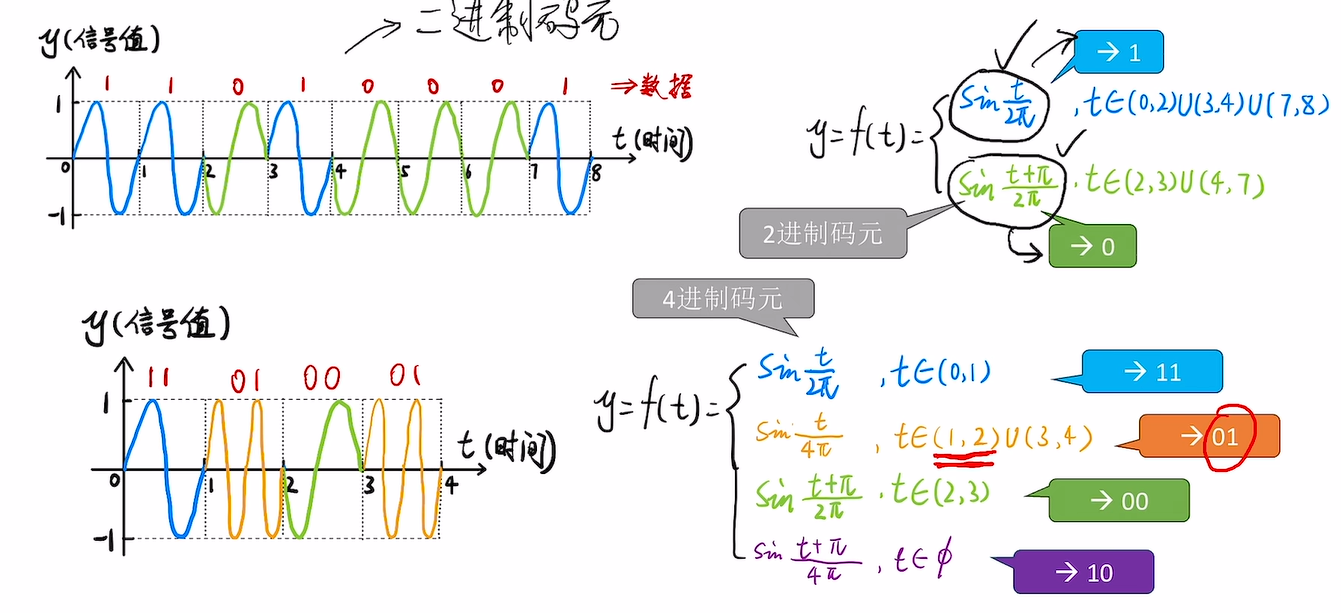 → 二进制码元
y(信号值)
1 1 0 1 0 0 0 1 ⇒数据
1
0 1 2 3 4 5 6 7 8
t(时间)
-1
y=f(t)=
sin t/2π , t∈(0,2)∪(3,4)∪(7,8)
→ 1
sin t+π/2π , t∈(2,3)∪(4,7)
→ 0
2进制码元
4进制码元
y(信号值)
11 01 00 01
1
0 1 2 3 4
t(时间)
-1
y=f(t)=
sin t/2π , t∈(0,1)
→ 11
sin t/4π , t∈(1,2)∪(3,4)
→ 01
sin t+π/2π , t∈(2,3)
→ 00
sin t+π/4π , t∈ϕ
→ 10